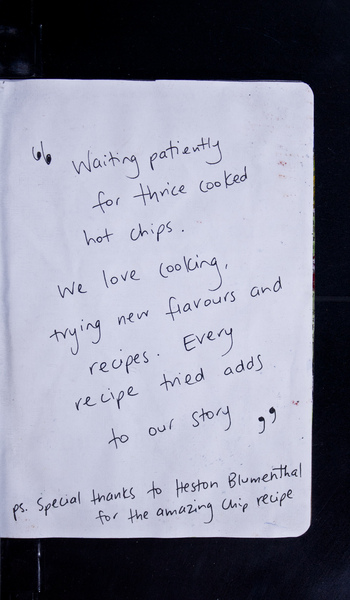 “ Waiting patiently
for thrice cooked
hot chips.
We love cooking,
trying new flavours and
recipes. Every
recipe tried adds
to our story ”
ps. Special thanks to Heston Blumenthal
for the amazing chip recipe